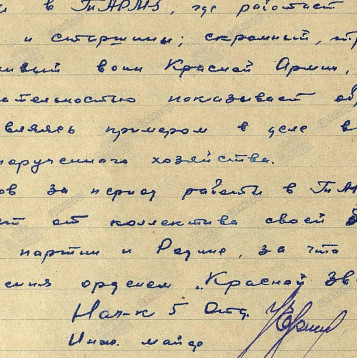 и в ПАРМЗ, где работает
и старшины; скромный,
воин Красной Армии,
показывает
являясь примером в деле
порученного хозяйства.
ов за период работы в
от коллектива своей
партии и Родине, за что
ения орденом „Красной Зв
Нач-к 5 Отд.
Инж. майор